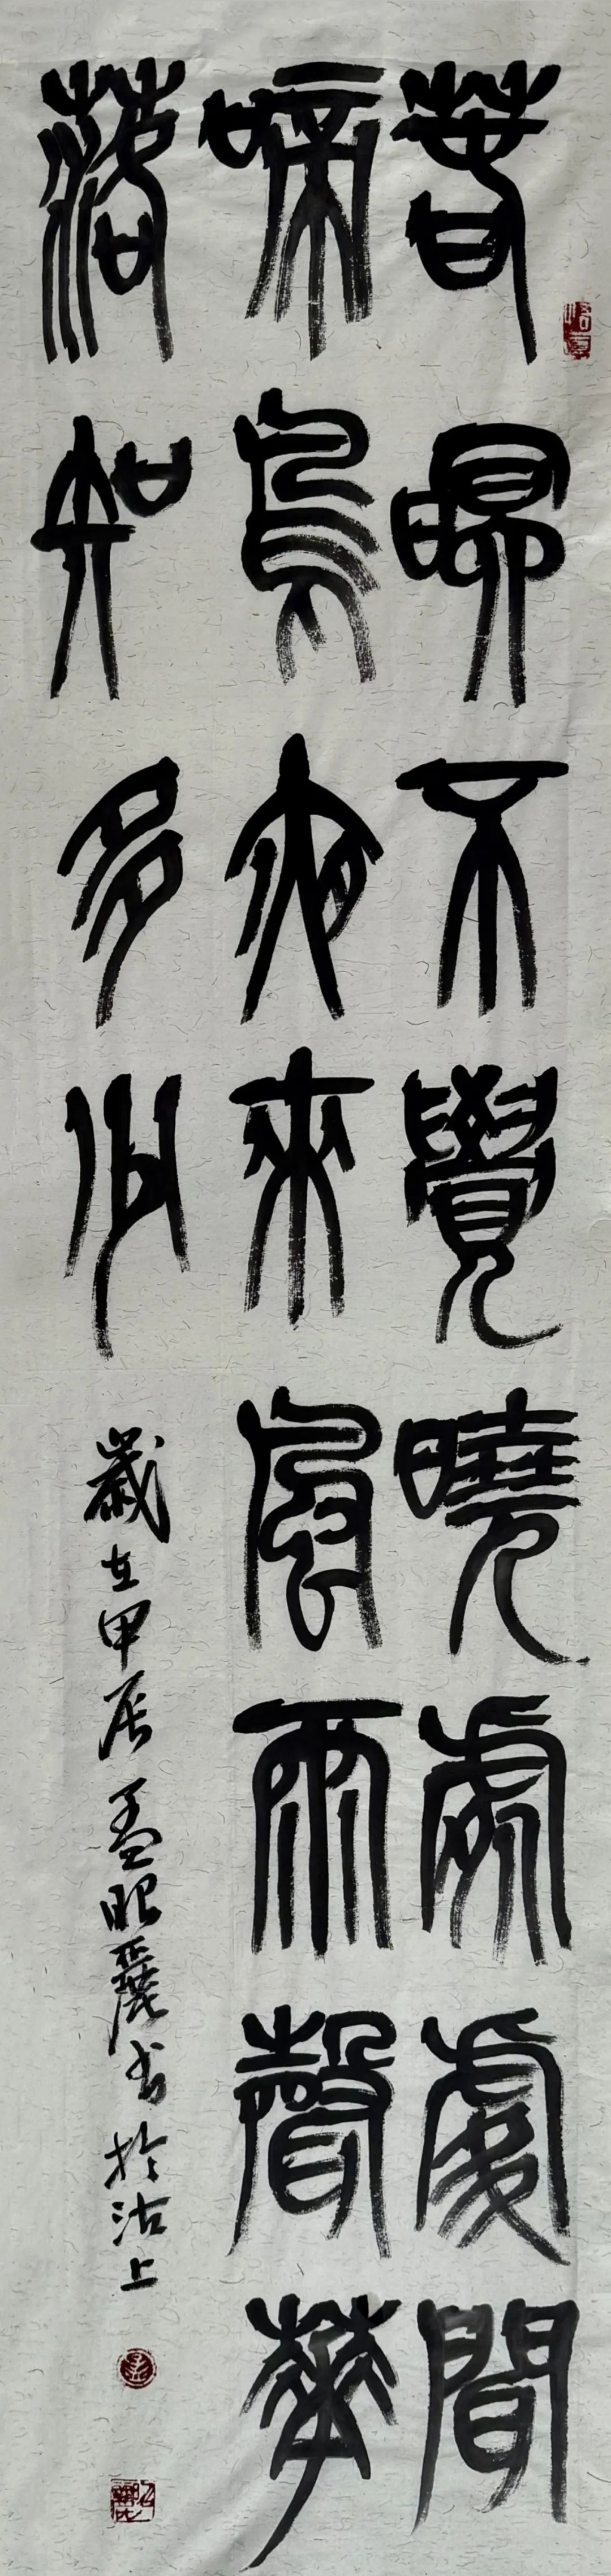 春眠不覺曉處處聞
啼鳥夜來風雨聲華
落知多少
歲在甲辰孟昭麗書於沽上
孟